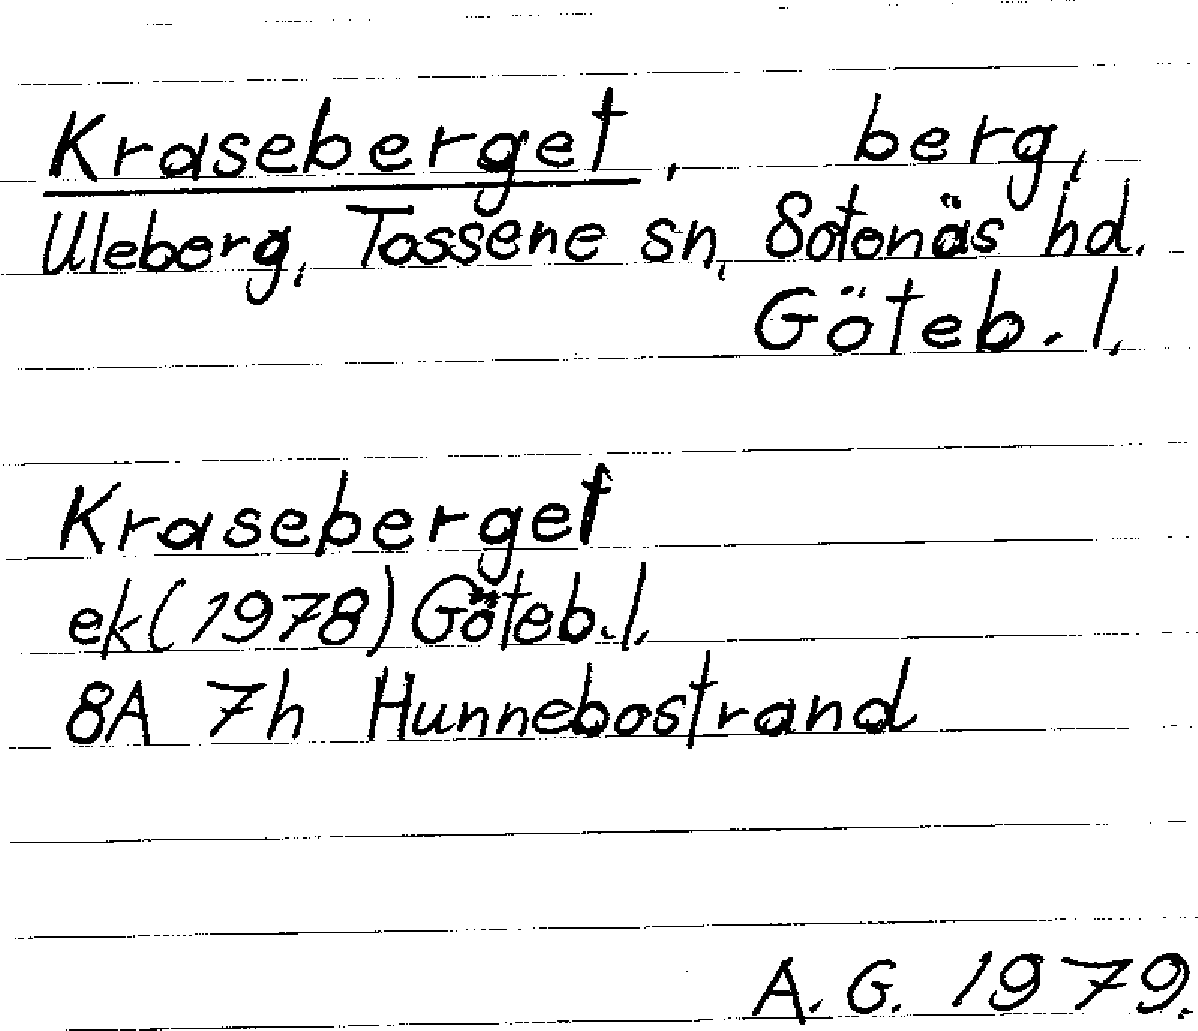 Kraseberget, berg,
Uleberg, Tossene sn, Sotenäs hd.
Göteb. l.
Kraseberget
ek (1978) Göteb. l.
8A 7h Hunnebostrand
A. G. 1979.